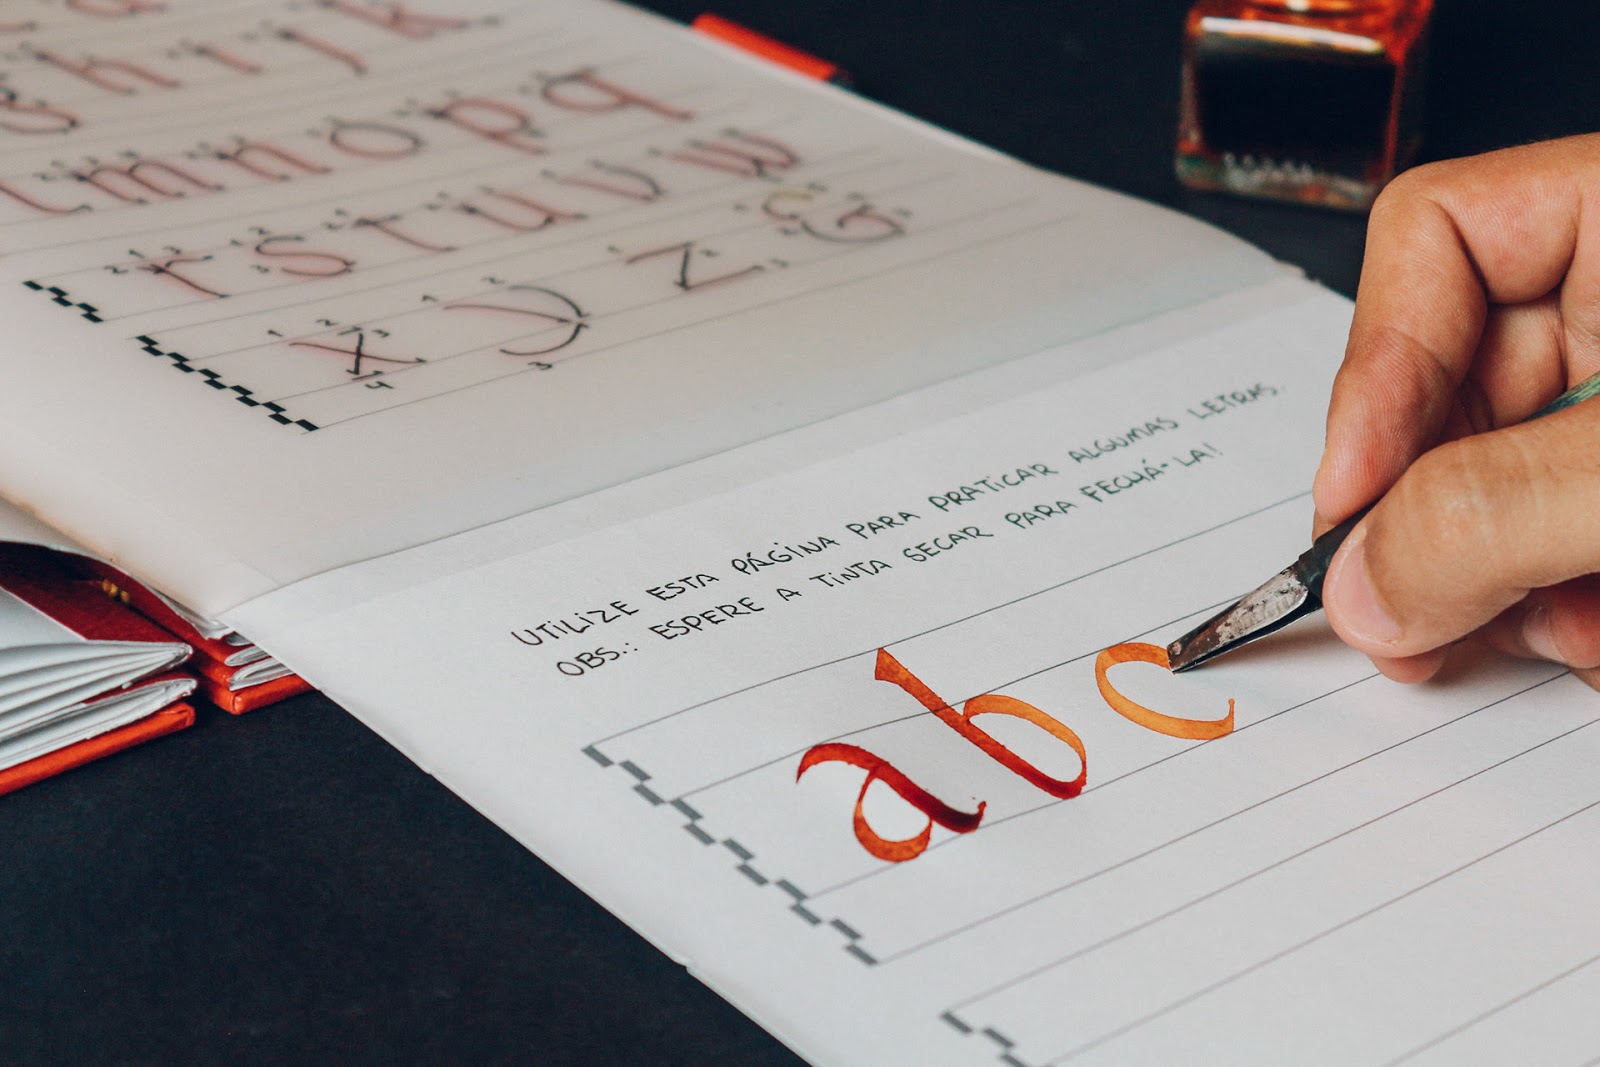 g h i j k
l m n o p q
r s t u v w
x y z
UTILIZE ESTA PÁGINA PARA PRATICAR ALGUMAS LETRAS.
OBS.: ESPERE A TINTA SECAR PARA FECHÁ-LA!
a b c